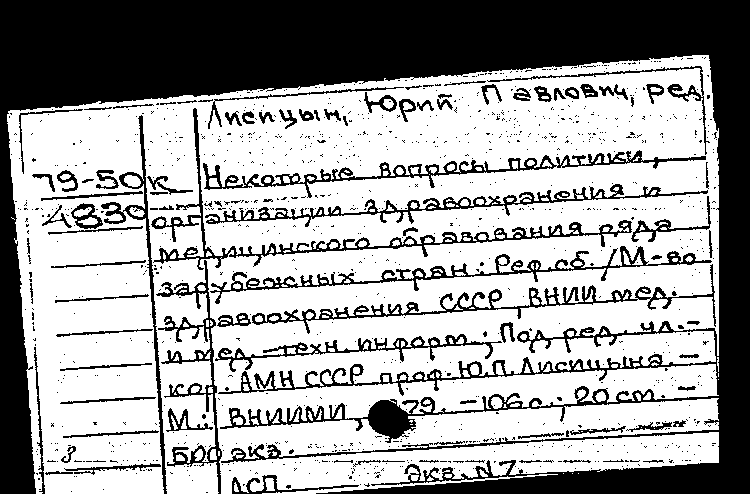 Лисицын, Юрий Павлович, ред.
79-50к Некоторые вопросы политики,
4830 организации здравоохранения и
медицинского образования ряда
зарубежных стран: Реф. сб. / М-во
здравоохранения СССР, ВНИИ мед.
и мед.-техн. информ.; Под ред. чл.-
кор. АМН СССР проф. Ю.П. Лисицына. -
М.: ВНИИМИ, 79. - 106 с.; 20 см. -
500 экз.
ДСП. Экз. N 7.